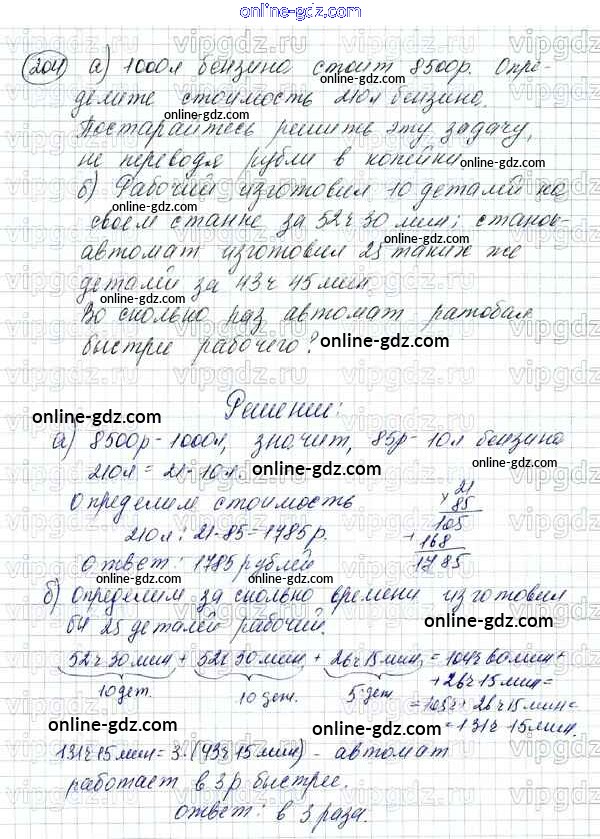 online-gdz.com
204 а) 1000л бензина стоит 8500р. Опре-
делите стоимость 210л бензина.
Постарайтесь решить эту задачу,
не переводя рубли в копейки.
б) Рабочий изготовил 10 деталей на
своем станке за 52ч 30 мин; станок-
автомат изготовил 25 таких же
деталей за 43ч 45 мин.
Во сколько раз автомат работал
быстрее рабочего?
Решение:
а) 8500р - 1000л, значит, 85р - 10л бензина
210л = 21·10л.
Определим стоимость
210л: 21·85=1785р.
Ответ: 1785 рублей
21
× 85
105
+ 168
1785
б) Определим за сколько времени изготовил
бы 25 деталей рабочий.
52ч 30 мин + 52ч 30 мин + 26ч 15 мин = 104ч 60 мин +
10 дет. 10 дет. 5 дет
+ 26ч 15 мин =
= 105ч + 26ч 15 мин =
= 131ч 15 мин.
131ч 15 мин = 3·(43ч 15 мин) - автомат
работает в 3р быстрее.
Ответ: в 3 раза.